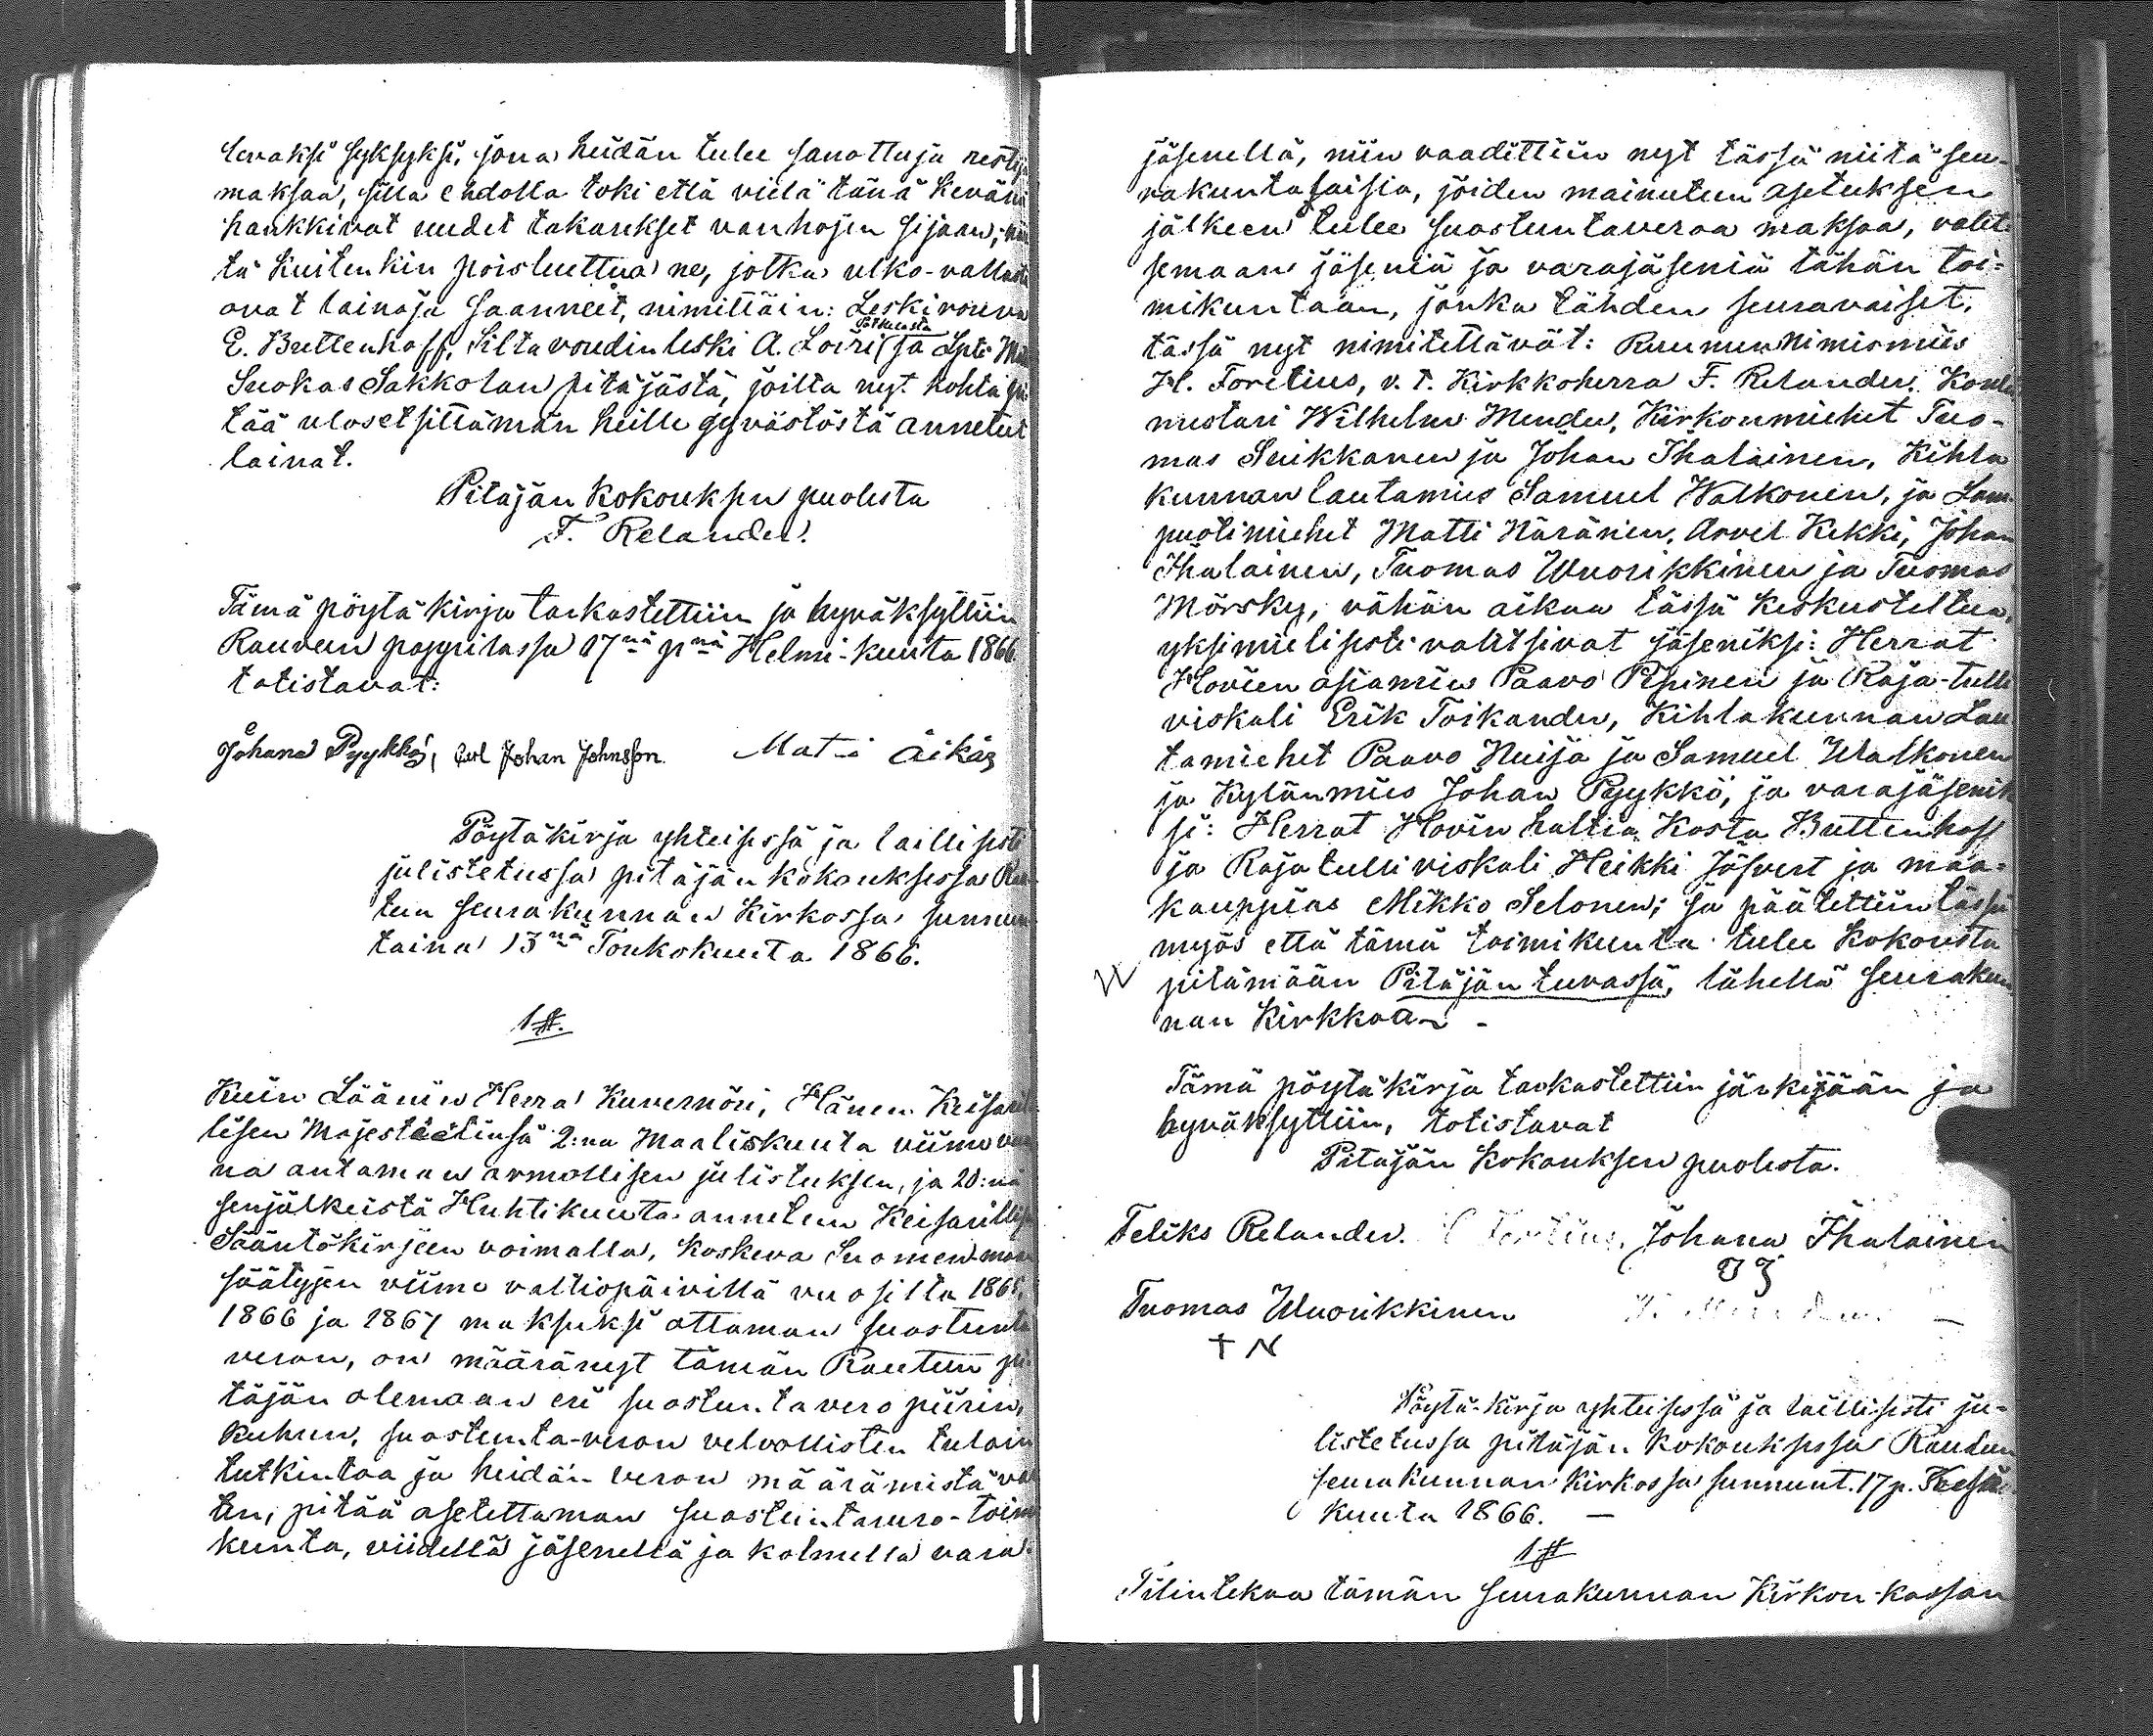 levaksi syksyksi, jona heidän tulee sanottuja restija
maksaa, sillä ehdolla toki että vielä tänä kevänä
hankkivat uudet takaukset vanhojen sijaan;
tä kuitenkin poisluettua ne, jotka ulko-vallasta
ovat lainaja saanneet, nimittäin: Leskirouva
E. Buttenhoff, Siltavoudin leski A. Loiri ja Lpt:
Suokas Sakkolan pitäjästä, joilta nyt kohta pi-
tää ulosetsittämän heille jyvästöstä annetut
lainat.
Pitäjän Kokouksen puolesta
F. Relander.
Tämä pöytäkirja tarkastettiin ja hyväksyttiin
Raudun pappilassa 17nä pnä Helmi-kuuta 1866
totistavat:
Johana Pyykkö, Carl Johan Johnsson. Mati Äikäs
Pöytäkirja yhteisessä ja laillisesti
julistetussa pitäjän kokouksessa Rau-
tun seurakunnan Kirkossa sunnun-
taina 13nä Toukokuuta 1866.
1 §.
Kuin Läänin Herra Kuvernöri, Hänen Keisaril-
lisen Majestäätinsä 2:na Maaliskuuta viime
na antaman armollisen julistuksen, ja 20:nä
senjälkeistä Huhtikuuta annetun Keisarillisen
Sääntökirjeen voimalla, koskeva Suomenmaan
säätyjen viime valtiopäivillä vuosilta 1865,
1866 ja 1867 maksuksi ottaman suostunta
veron, on määränyt tämän Rautun pi-
täjän olemaan eri suostuntavero piirin,
kuhun, suostunta-veron velvollisten tuloin
tutkintoa ja heidän veron määrämistä var-
ten, pitää asetettaman suostuntavero-toimi
kunta, viidellä jäsenellä ja kolmella vara-
jäsenellä, niin vaadittiin nyt tässä niitä seu-
rakuntalaisia, joiden mainitun asetuksen
jälkeen tulee suostuntaveroa maksaa, valit-
semaan jäseniä ja varajäseniä tähän toi-
mikuntaan, jonka tähden seuravaiset,
tässä nyt nimitettävät: Ruunun Nimismies
H. Foretius, v. t. Kirkkoherra F. Relander, Koulu
mestari Wilhelm Mender, Kirkonmiehet Tuo-
mas Suikkanen ja Johan Ihalainen, Kihla
kunnan lautamies Samuel Walkonen, ja Lam-
puotimiehet Matti Näränen, Arvel Kekki, Johan
Ihalainen, Tuomas Wuorikkinen ja Tuomas
Mörsky, vähän aikaa tässä keskusteltua,
yksimielisesti valitsivat jäseniksi: Herrat
Hovien asiamies Paavo Pepinen ja Raja-tulli
viskali Erik Toikander, Kihlakunnan Lau
tamiehet Paavo Nuija ja Samuel Walkonen
ja Kylänmies Johan Pyykkö, ja varajäsenik
si: Herrat Hovin haltia Kosta Buttenhoff
ja Rajatulliviskali Heikki Jåfvert ja maa-
kauppias Mikko Selonen; ja päätettiin tässä
myös että tämä toimikunta tulee kokousta
pitämään Pitäjän tuvassa, lähellä seurakun
nan Kirkkoa. -
Tämä pöytäkirja tarkastettiin järkijään ja
hyväksyttiin, totistavat
Pitäjän Kokouksen puolesta.
Feliks Relander. Johana Ihalainen
Tuomas Wuorikkinen
+ N
Pöytä-kirja yhteisessä ja laillisesti ju-
listetussa pitäjän kokouksessa Raudun
seurakunnan kirkossa sunnunt. 17 p. Kesä
kuuta 1866. —
1 §
Tilintekoa tämän seurakunnan Kirkon-kassan